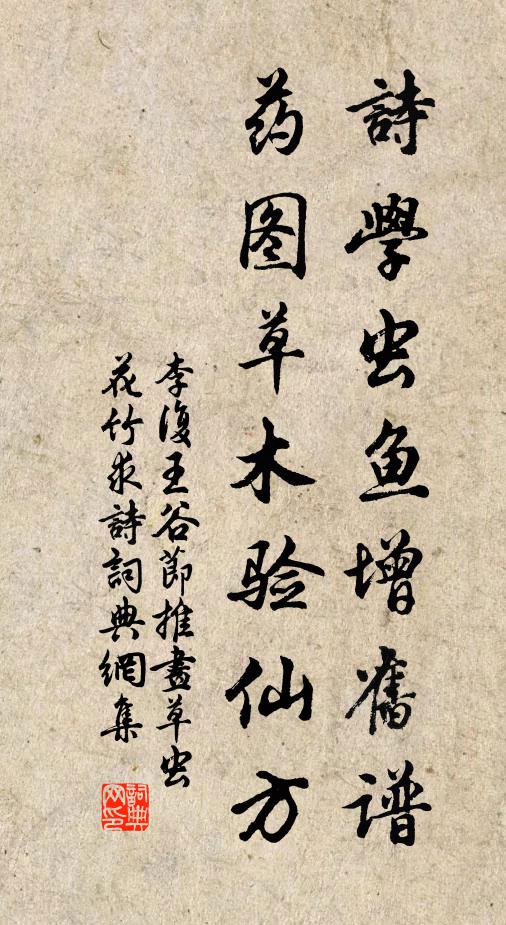 詩學虫鱼增舊谱
药图草木验仙方
李復王谷節推畫草虫
花竹求詩詞典網集
詞典网印